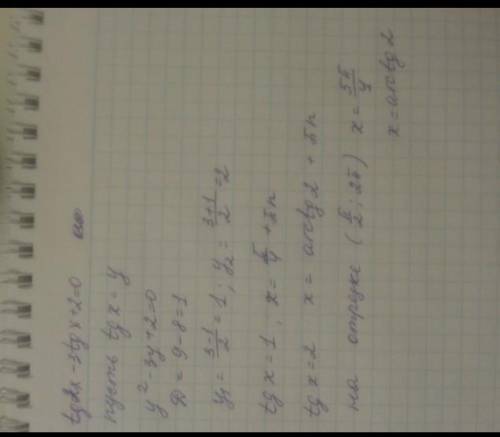 tg2x-3tgx+2=0
пусть tgx=y
y²-3y+2=0
D=9-8=1
y₁=\frac{3-1}{2}=1; y₂=\frac{3+1}{2}=2
tgx=1, x=\frac{π}{4}+πn
tgx=2 x=arctg2+πn
на отрезке (\frac{π}{2}; 2π) x=\frac{5π}{4}
x=arctg2